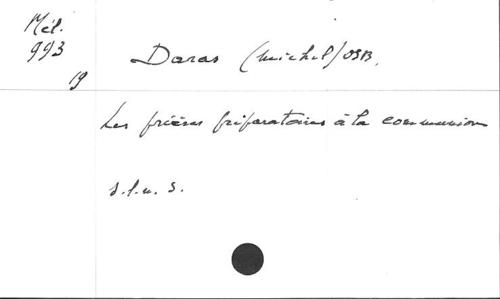 Mél.
993
19
Daras (Michel) OSB.
Les prières préparatoires à la communion
s.l.n.s.